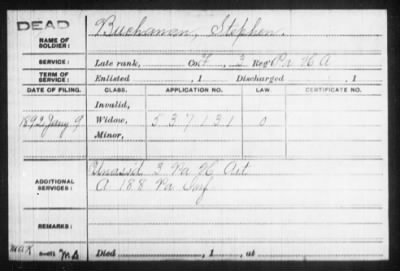 DEAD
NAME OF SOLDIER: Buchanan, Stephen.
SERVICE: Late rank, Co. F, 3 Reg't Pa H A
TERM OF SERVICE: Enlisted , 1 Discharged , 1
DATE OF FILING. CLASS. APPLICATION NO. LAW CERTIFICATE NO.
Invalid,
1892 Jany 9 Widow, 537131 0
Minor,
ADDITIONAL SERVICES: Unassd 3 Pa H Art
A 188 Pa Inf
REMARKS:
Died , 1 , at